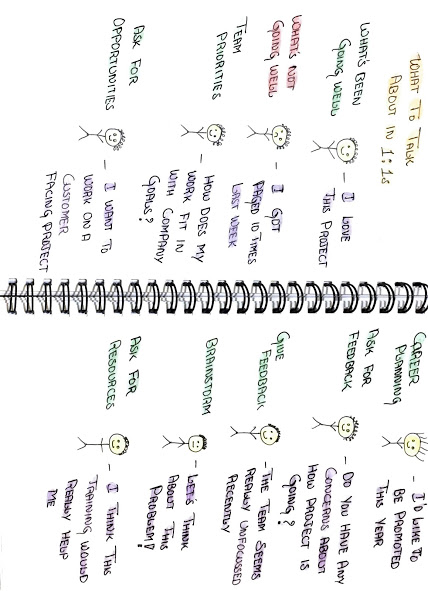 WHAT TO TALK
ABOUT IN 1:1s
WHAT'S BEEN
GOING WELL
- I LOVE
THIS PROJECT
WHAT'S NOT
GOING WELL
- I GOT
PAGED 10 TIMES
LAST WEEK
TEAM
PRIORITIES
- HOW DOES MY
WORK FIT IN
WITH COMPANY
GOALS?
ASK FOR
OPPORTUNITIES
- I WANT TO
WORK ON A
CUSTOMER
FACING PROJECT
CAREER
PLANNING
- I'D LIKE TO
BE PROMOTED
THIS YEAR
ASK FOR
FEEDBACK
- DO YOU HAVE ANY
CONCERNS ABOUT
HOW PROJECT IS
GOING?
GIVE
FEEDBACK
- THE TEAM SEEMS
REALLY UNFOCUSSED
RECENTLY
BRAINSTORM
- LET'S THINK
ABOUT THIS
PROBLEM!
ASK FOR
RESOURCES
- I THINK THIS
TRAINING WOULD
REALLY HELP
ME